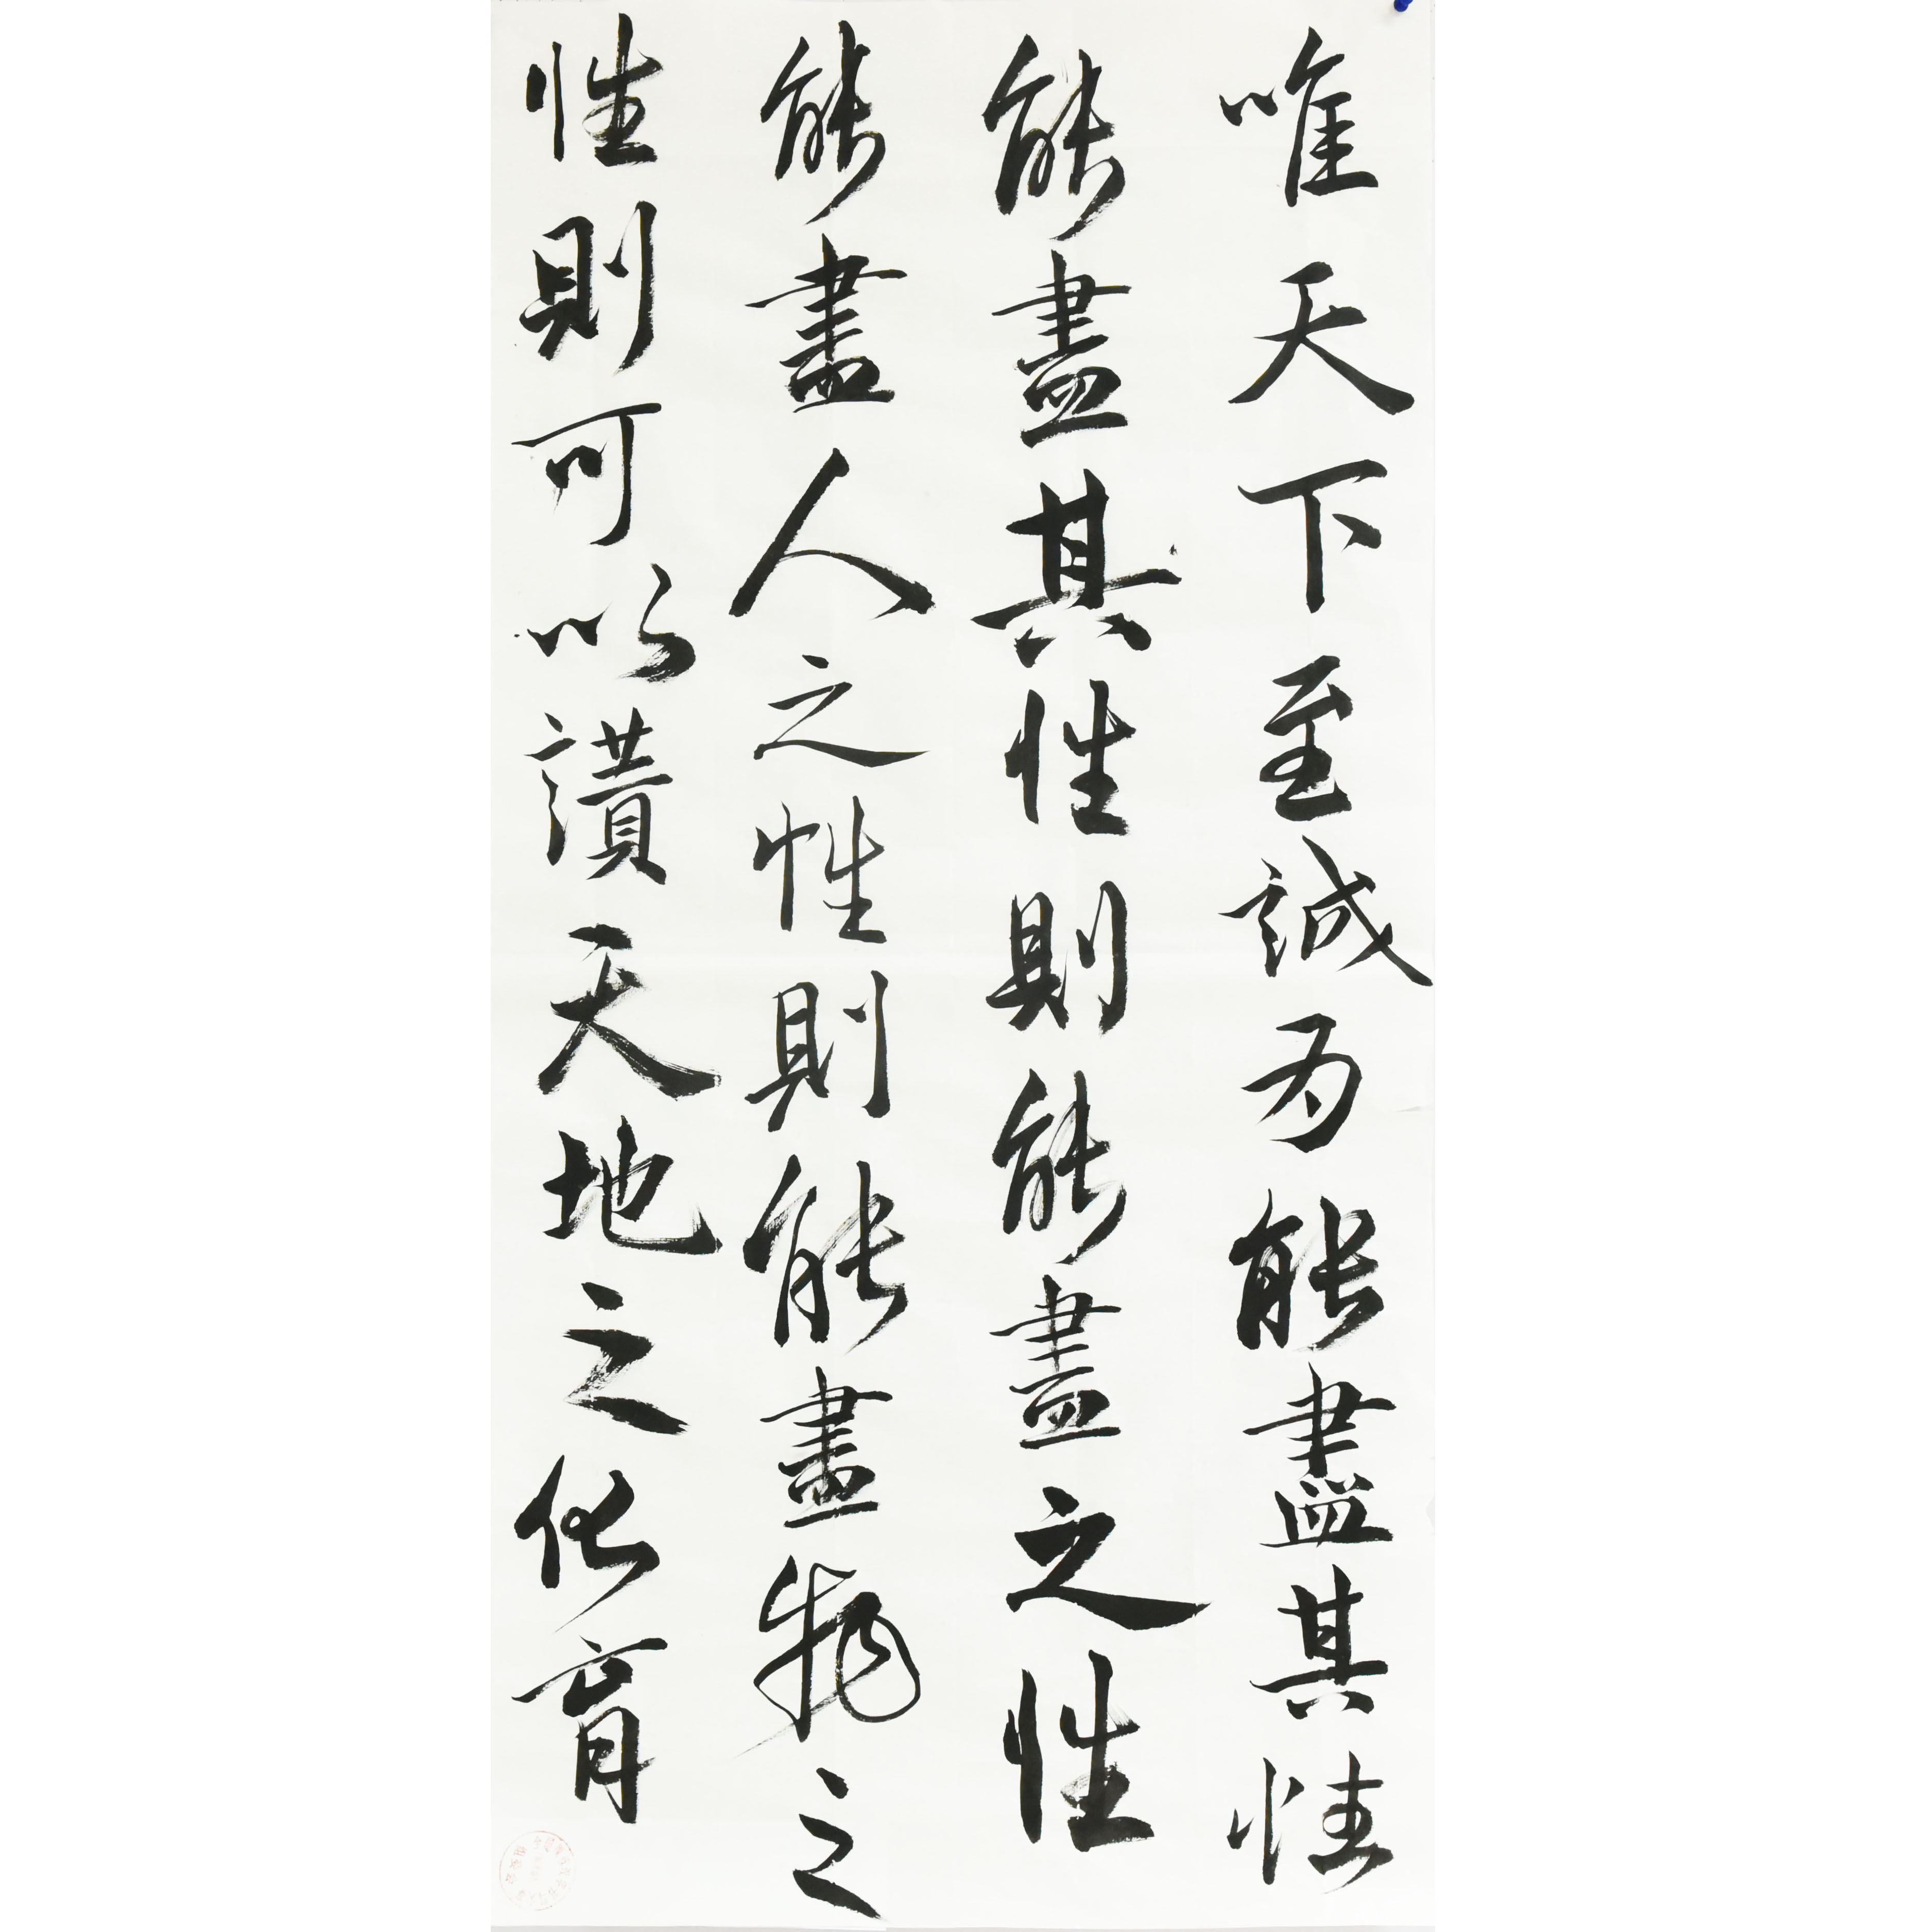 唯天下至誠為能盡其性
能盡其性則能盡之性
能盡人之性則能盡物之
性則可以讚天地之化育